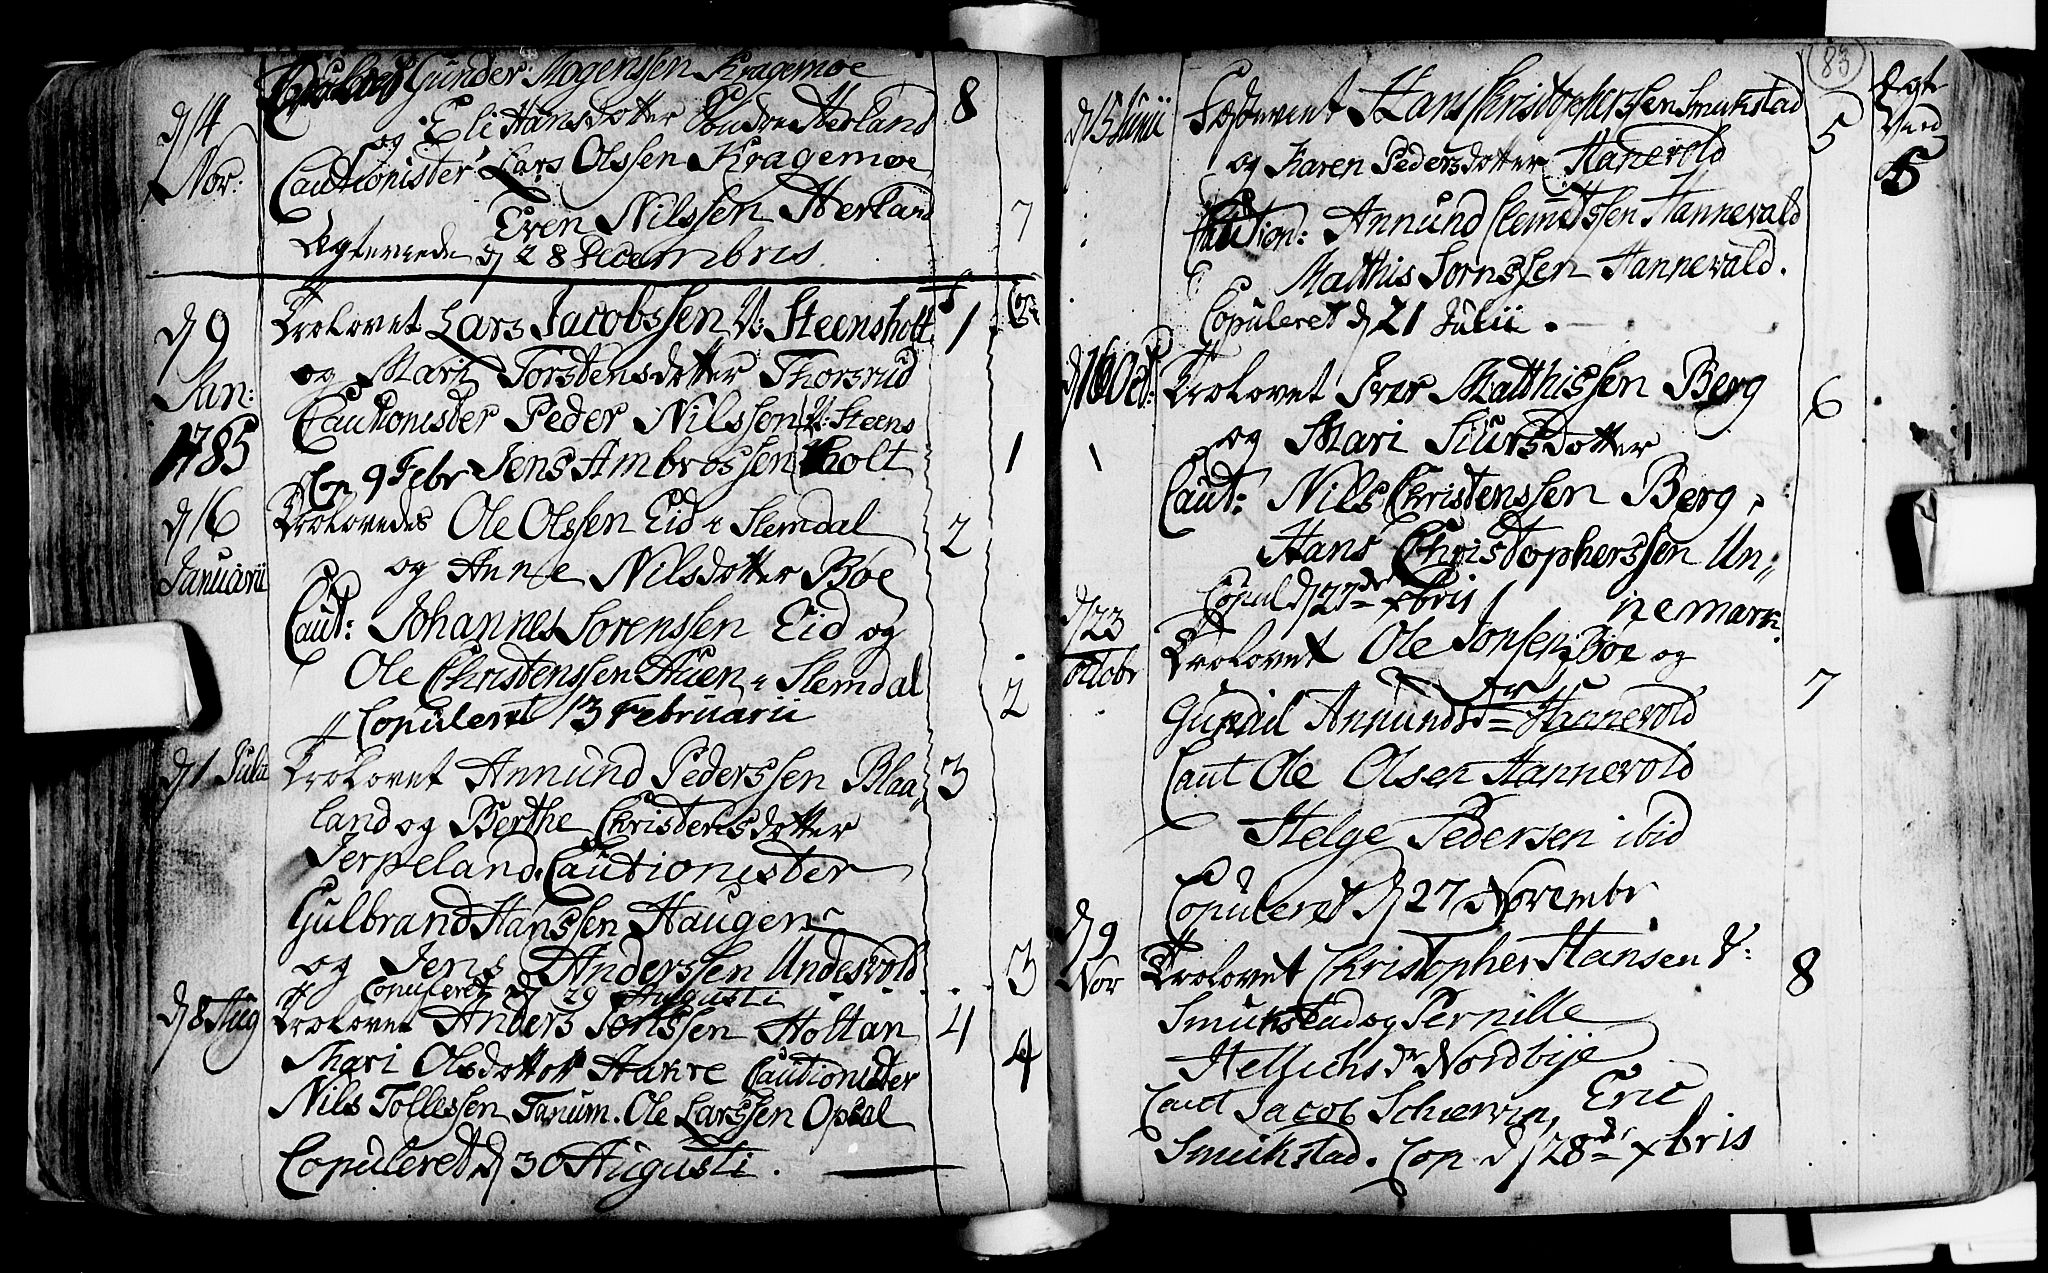 Gunder Mogenssen Kragemoe
d 14 og Eli Hansdotter Søndre Herland 8
Nov: Cautionister Lars Olssen Kragemoe
Even Nilssen Herland 7
Egteviede d 28 Decembris.
d 9 Trolovet Lars Jacobssen V: Steensholt 1
Jan: og Mari Torstensdotter Thorsrud
1785 Cautionister Peder Nilssen V: Steens
den 9 Febr Jens Ambrossen holt 1
d 16 Trolovedes Ole Olssen Eid i Slemdal 2
Januarii og Anne Nilsdotter Boe
Caut: Johannes Sorenssen Eid og
Ole Christenssen Huen i Slemdal 2
Copuleret 13 Februarii
d 1 Julii Trolovet Annund Pederssen Blaa- 3
land og Berthe Christensdotter
Jerpeland. Cautionister
Gulbrand Hanssen Haugen
og Jens Anderssen Undesvold 3
Copuleret d 29 Augusti
d 8 Aug Trolovet Anders Jonssen Holtan 4
Mari Olsdotter Hakre Cautionister 4
Nils Tollessen Tanum. Ole Larssen Opsal
Copuleret d 30 Augusti.
83
d 15 Junii Hans Christopherssen Smukstad 5
og Karen Pedersdotter Hanevold 5
Caution: Annund Clemetssen Hannevald
Matthis Jornssen Hannevald.
Copuleret d 21 Julii.
d 16 Oct: Trolovet Iver Matthissen Berg 6
og Mari Siursdotter
Caut: Nils Christenssen Berg,
Hans Christopherssen Un-
Copul d 27de xbris nemark.
d 23 Trolovet Ole Jonsen Boe og
octobr
Gunild Annundsdr Hannevold 7
Caut Ole Olsen Hannevold
Helge Pedersen ibid
Copuleret d 27 Novembr
d 9
Nov Trolovet Christopher Hansen V: 8
Smukstad og Pernille
Hellichsdr Nordbye
Caut Jacob Schervin, Eric
Smukstad. Cop d 28de xbris